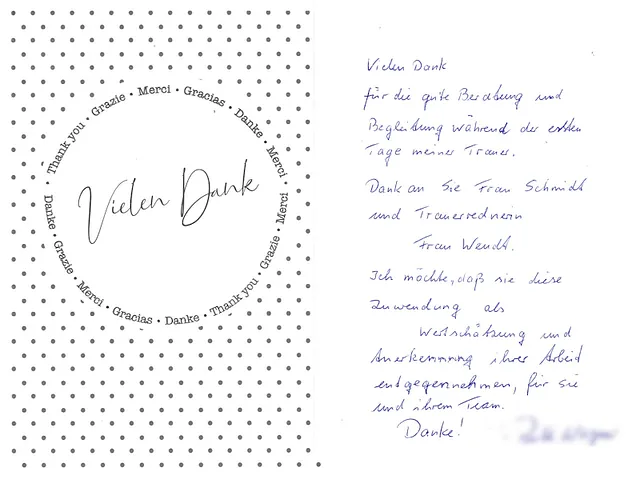 Thank you • Grazie • Merci • Gracias • Danke • Merci • Danke • Grazie • Merci • Gracias • Danke • Thank you • Grazie • Merci •
Vielen Dank
Vielen Dank
für die gute Beratung und
Begleitung während der ersten
Tage meiner Trauer.
Dank an Sie Frau Schmidt
und Trauerrednerin
Frau Wendt.
Ich möchte, daß sie diese
Zuwendung als
Wertschätzung und
Anerkennung ihrer Arbeid
entgegennehmen, für sie
und ihrem Team.
Danke!